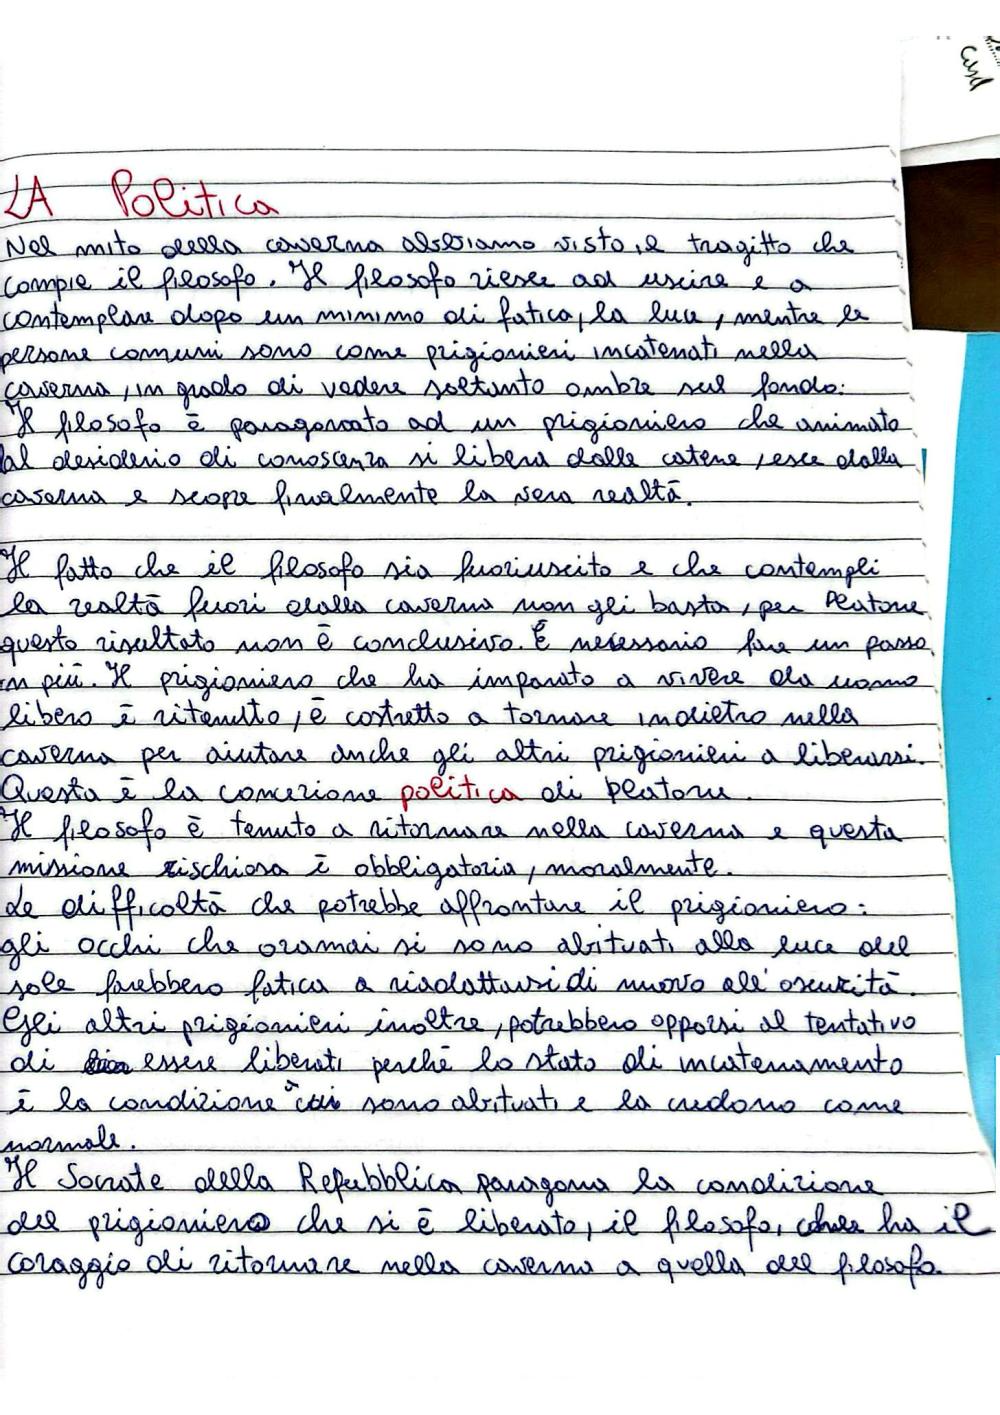 casd
LA Politica
Nel mito della caverna abbiamo visto il tragitto che
compie il filosofo. Il filosofo riesce ad uscire e a
contemplare dopo un minimo di fatica, la luce, mentre le
persone comuni sono come prigionieri incatenati nella
caverna, in grado di vedere soltanto ombre sul fondo.
Il filosofo è paragonato ad un prigioniero che animato
al desiderio di conoscenza si libera dalle catene, esce dalla
caverna e scopre finalmente la vera realtà.
Il fatto che il filosofo sia fuoriuscito e che contempli
la realtà fuori dalla caverna non gli basta, per Platone
questo risultato non è conclusivo. È necessario fare un passo
in più. Il prigioniero che ha imparato a vivere da uomo
libero è ritenutto, è costretto a tornare indietro nella
caverna per aiutare anche gli altri prigionieri a liberarsi.
Questa è la concezione politica di Platone.
Il filosofo è tenuto a ritornare nella caverna e questa
missione rischiosa è obbligatoria, moralmente.
Le difficoltà che potrebbe affrontare il prigioniero:
gli occhi che oramai si sono abituati alla luce del
sole farebbero fatica a riadattarsi di nuovo all'oscurità.
Gli altri prigionieri inoltre, potrebbero opporsi al tentativo
di essere liberati perché lo stato di incatenamento
è la condizione a cui sono abituati e la credono come
normale.
Il Socrate della Repubblica paragona la condizione
del prigioniero che si è liberato, il filosofo, che ha il
coraggio di ritornare nella caverna a quella del filosofo.